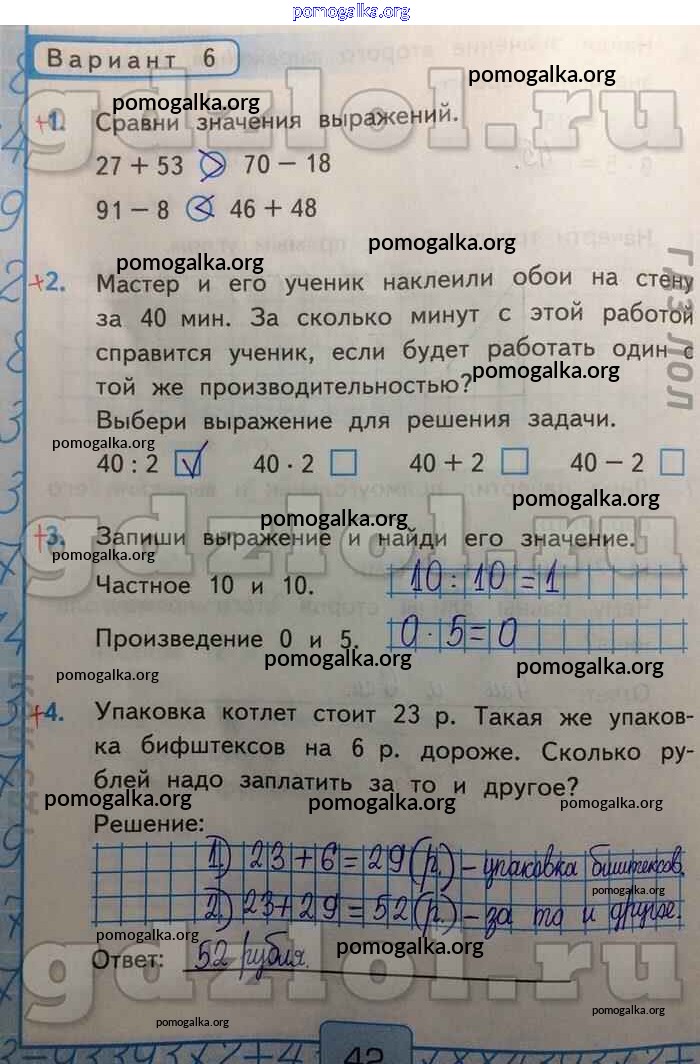 pomogalka.org
Вариант 6
pomogalka.org
gdzlol.ru
pomogalka.org
+1. Сравни значения выражений.
27 + 53 > 70 − 18
91 − 8 < 46 + 48
pomogalka.org
pomogalka.org
ГДЗ ЛОЛ
+2. Мастер и его ученик наклеили обои на стену
за 40 мин. За сколько минут с этой работой
справится ученик, если будет работать один с
той же производительностью?
pomogalka.org
Выбери выражение для решения задачи.
pomogalka.org
40 : 2 ☑ 40 · 2 ☐ 40 + 2 ☐ 40 − 2 ☐
pomogalka.org
pomogalka.org
gdzlol.ru
+3. Запиши выражение и найди его значение.
pomogalka.org
Частное 10 и 10. 10 : 10 = 1
Произведение 0 и 5. 0 · 5 = 0
pomogalka.org
pomogalka.org
pomogalka.org
+4. Упаковка котлет стоит 23 р. Такая же упаков-
ка бифштексов на 6 р. дороже. Сколько ру-
блей надо заплатить за то и другое?
pomogalka.org
pomogalka.org
pomogalka.org
Решение:
1) 23 + 6 = 29 (р.) – упаковка биштексов.
pomogalka.org
2) 23 + 29 = 52 (р.) – за то и другое.
pomogalka.org
pomogalka.org
Ответ: 52 рубля.
gdzlol.ru
pomogalka.org
pomogalka.org
42